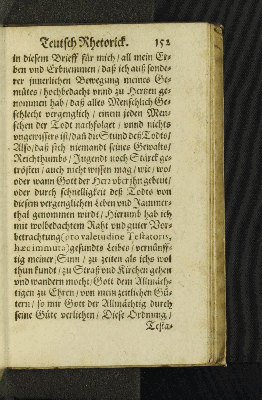 Teutsch Rhetorick. 152
in diesem Brieff für mich / all mein Er-
ben vnd Erbnemmen / daß ich auß sonde-
rer jnnerlichen Bewegung meines Ge-
mütes / hochbedacht vnnd zu Hertzen ge-
nommen hab / daß alles Menschlich Ge-
schlecht vergenglich / einem jeden Men-
schen der Todt nachfolget / vnnd nichts
vngewissers ist / daß die Stund deß Todts /
Also / daß sich niemandt seines Gewalts /
Reichthumbs / Jugendt noch Stärck ge-
trösten / auch nicht wissen mag / wie / wo /
oder wann Gott der Herr vber jhn gebeut /
oder durch schnelligkeit deß Todts von
diesem vergenglichen Leben vnd Jammer-
thal genommen wirdt / Hierumb hab ich
mit wolbedachtem Raht vnd guter Vor-
betrachtung (pro valetudine Testatoris,
hæc immuta) gesundts Leibes / vernünff-
tig meiner Sinn / zu zeiten als ichs wol
thun kundt / zu Straß vnd Kirchen gehen
vnd wandern mocht / Gott dem Allmäch-
tigen zu Ehren / von mein zeitlichen Gü-
tern / so mir Gott der Allmächtig durch
seine Güte verliehen / Diese Ordnung /
Testa-